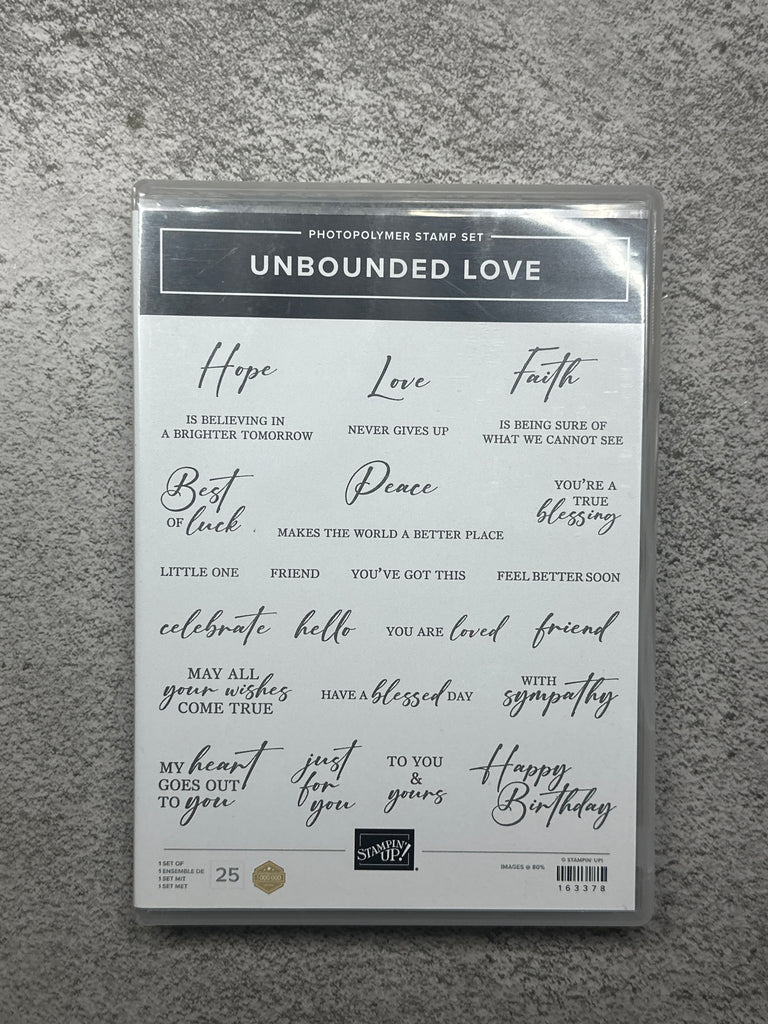 PHOTOPOLYMER STAMP SET
UNBOUNDED LOVE
Hope
IS BELIEVING IN
A BRIGHTER TOMORROW
Love
NEVER GIVES UP
Faith
IS BEING SURE OF
WHAT WE CANNOT SEE
Best
OF luck
Peace
MAKES THE WORLD A BETTER PLACE
YOU'RE A
TRUE
blessing
LITTLE ONE
FRIEND
YOU'VE GOT THIS
FEEL BETTER SOON
celebrate
hello
YOU ARE loved
friend
MAY ALL
your wishes
COME TRUE
HAVE A blessed DAY
WITH
sympathy
MY heart
GOES OUT
TO you
just
for
you
TO YOU
&
yours
Happy
Birthday
STAMPIN'
UP!
1 SET OF
1 ENSEMBLE DE
1 SET MIT
1 SET MET
25
IMAGES @ 80%
© STAMPIN' UP!
163378